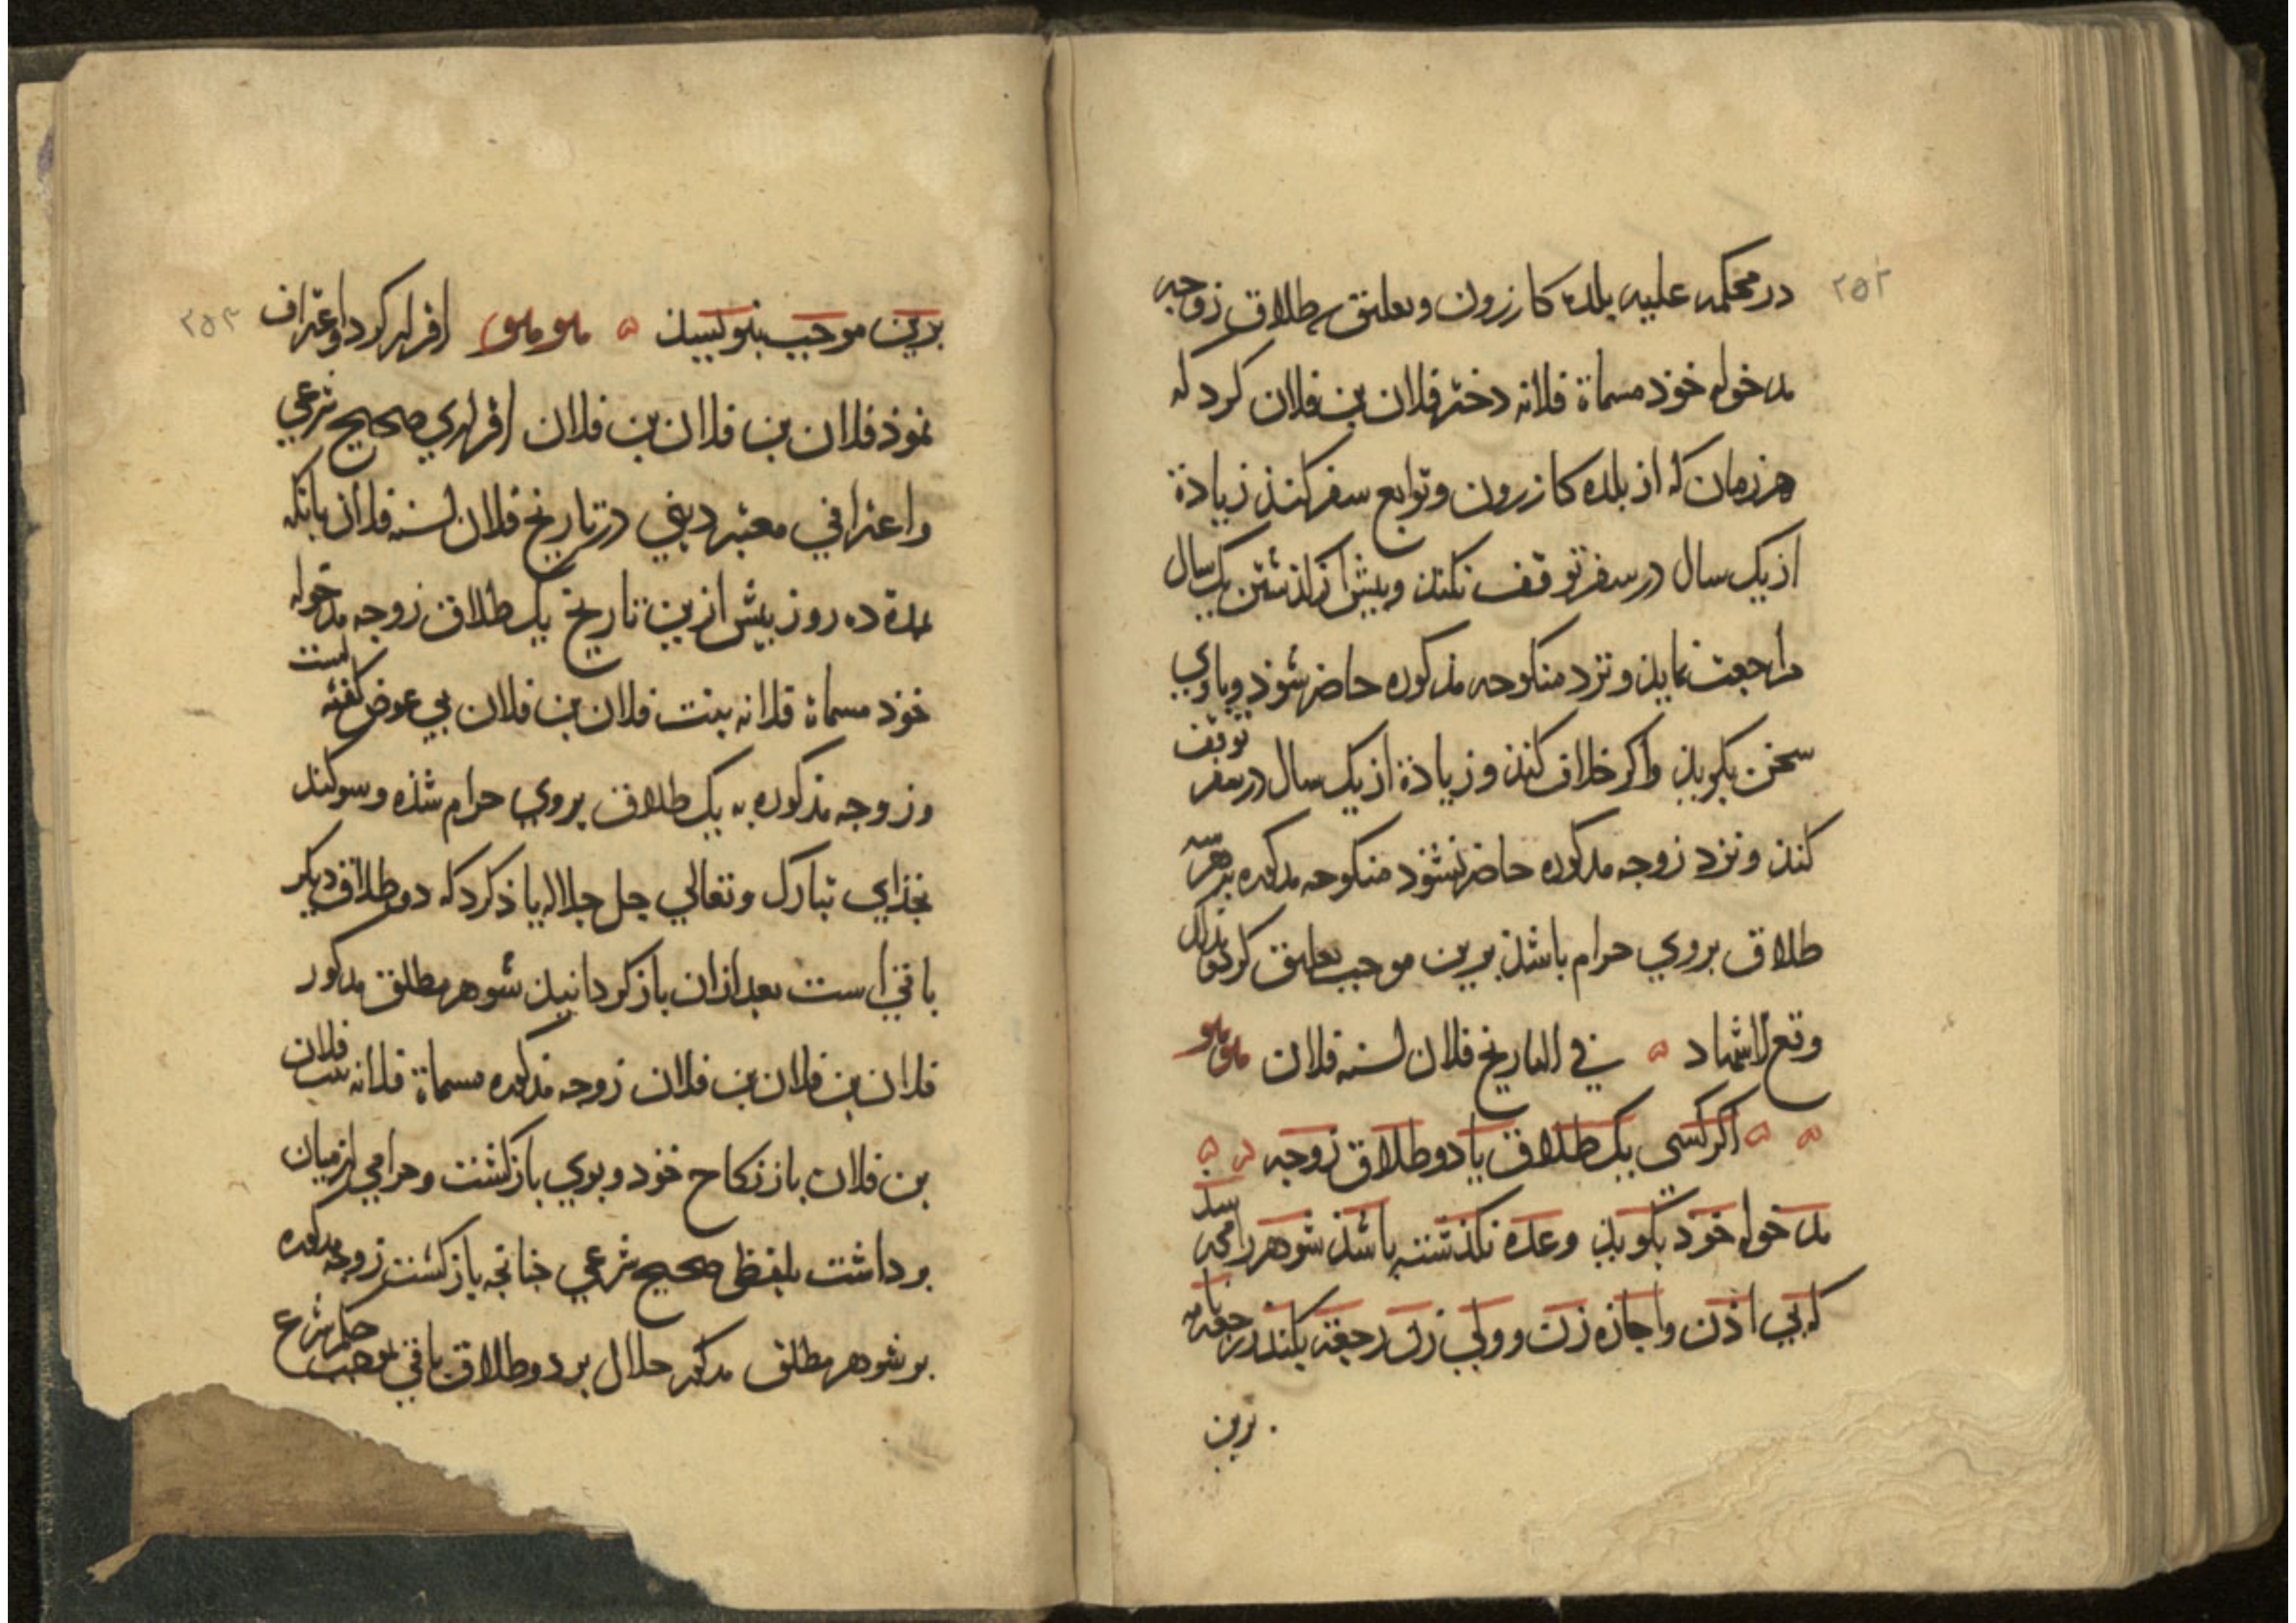 ۲۵۲
در محکمه علیه بلده کازرون و تعلیق سه طلاق زوجه
مدخوله خوذ مسماة فلانه دختر فلان بن فلان کرد که
هر زمان که از بلده کازرون و توابع سفر کنذ زیاذة
از یک سال در سفر توقف نکنذ و پیش از کذشتن یک سال
مراجعت نمایذ و نزد منکوحه مذکوره حاضر شوذ و با وی
سخن بکویذ واکر خلاف کنذ و زیاذة از یک سال در سفر توقف
کنذ و نزد زوجه مذکوره حاضر نشوذ منکوحه مذکوره بهر سه
طلاق بر وی حرام باشذ برین موجب تعلیق کرد و بذلک
وقع الاشهاد ه في التاریخ فلان لسنه فلان
ه ه اکر کسی یک طلاق یا دو طلاق زوجه
مدخوله خوذ بکویذ و عده نکذشته باشذ شوهر را می رسذ
که بی اذن و اجازه زن و ولی زن رجعة بکنذ رجعة نامه
برین
۲۵۳
برین موجب بنویسیذ ه اقرار کرد و اعتراف
نموذ فلان بن فلان بن فلان اقراری صحیح شرعي
واعترافي معتبر دیني در تاریخ فلان لسنه فلان بانکه
مدة ده روز پیش ازین تاریخ یک طلاق زوجه مدخوله
خوذ مسماة فلانه بنت فلان بن فلان بی عوض کفته است
و زوجه مذکوره به یک طلاق بروي حرام شذه و سوکند
بخذاي تبارک وتعالي جل جلاله یاذ کرد که دو طلاق دیکر
باقي است بعد ازان باز کردانیذ شوهر مطلق مذکور
فلان بن فلان بن فلان زوجه مذکوره مسماة فلانه بنت فلان
بن فلان باز نکاح خوذ و بوي باز کشت و حرامي از میان
برداشت بلفظی صحیح شرعي چنانچه باز کشت زوجه مذکوره
بر شوهر مطلق مذکور حلال بر دو طلاق باقي بموجب حکم شرع